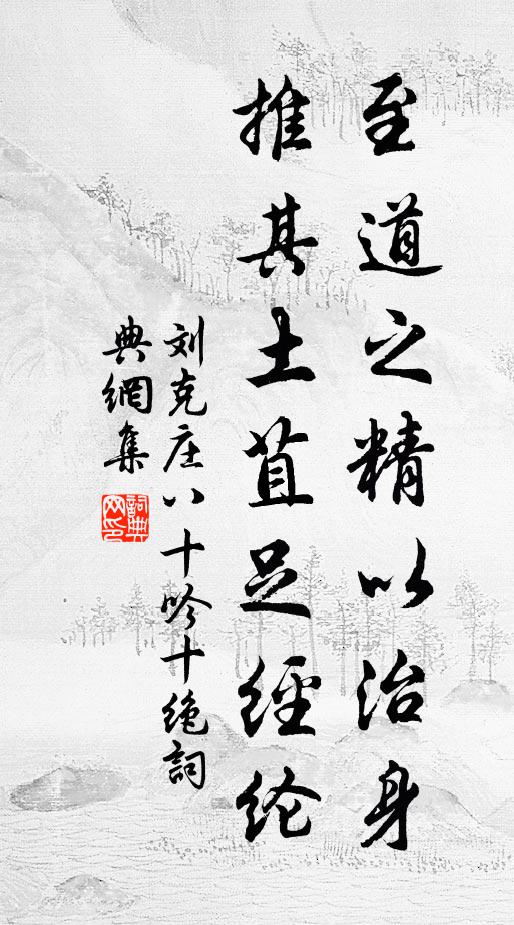 至道之精以治身
推其土苴足經纶
刘克庄八十吟十绝詞
典網集
詞典网印